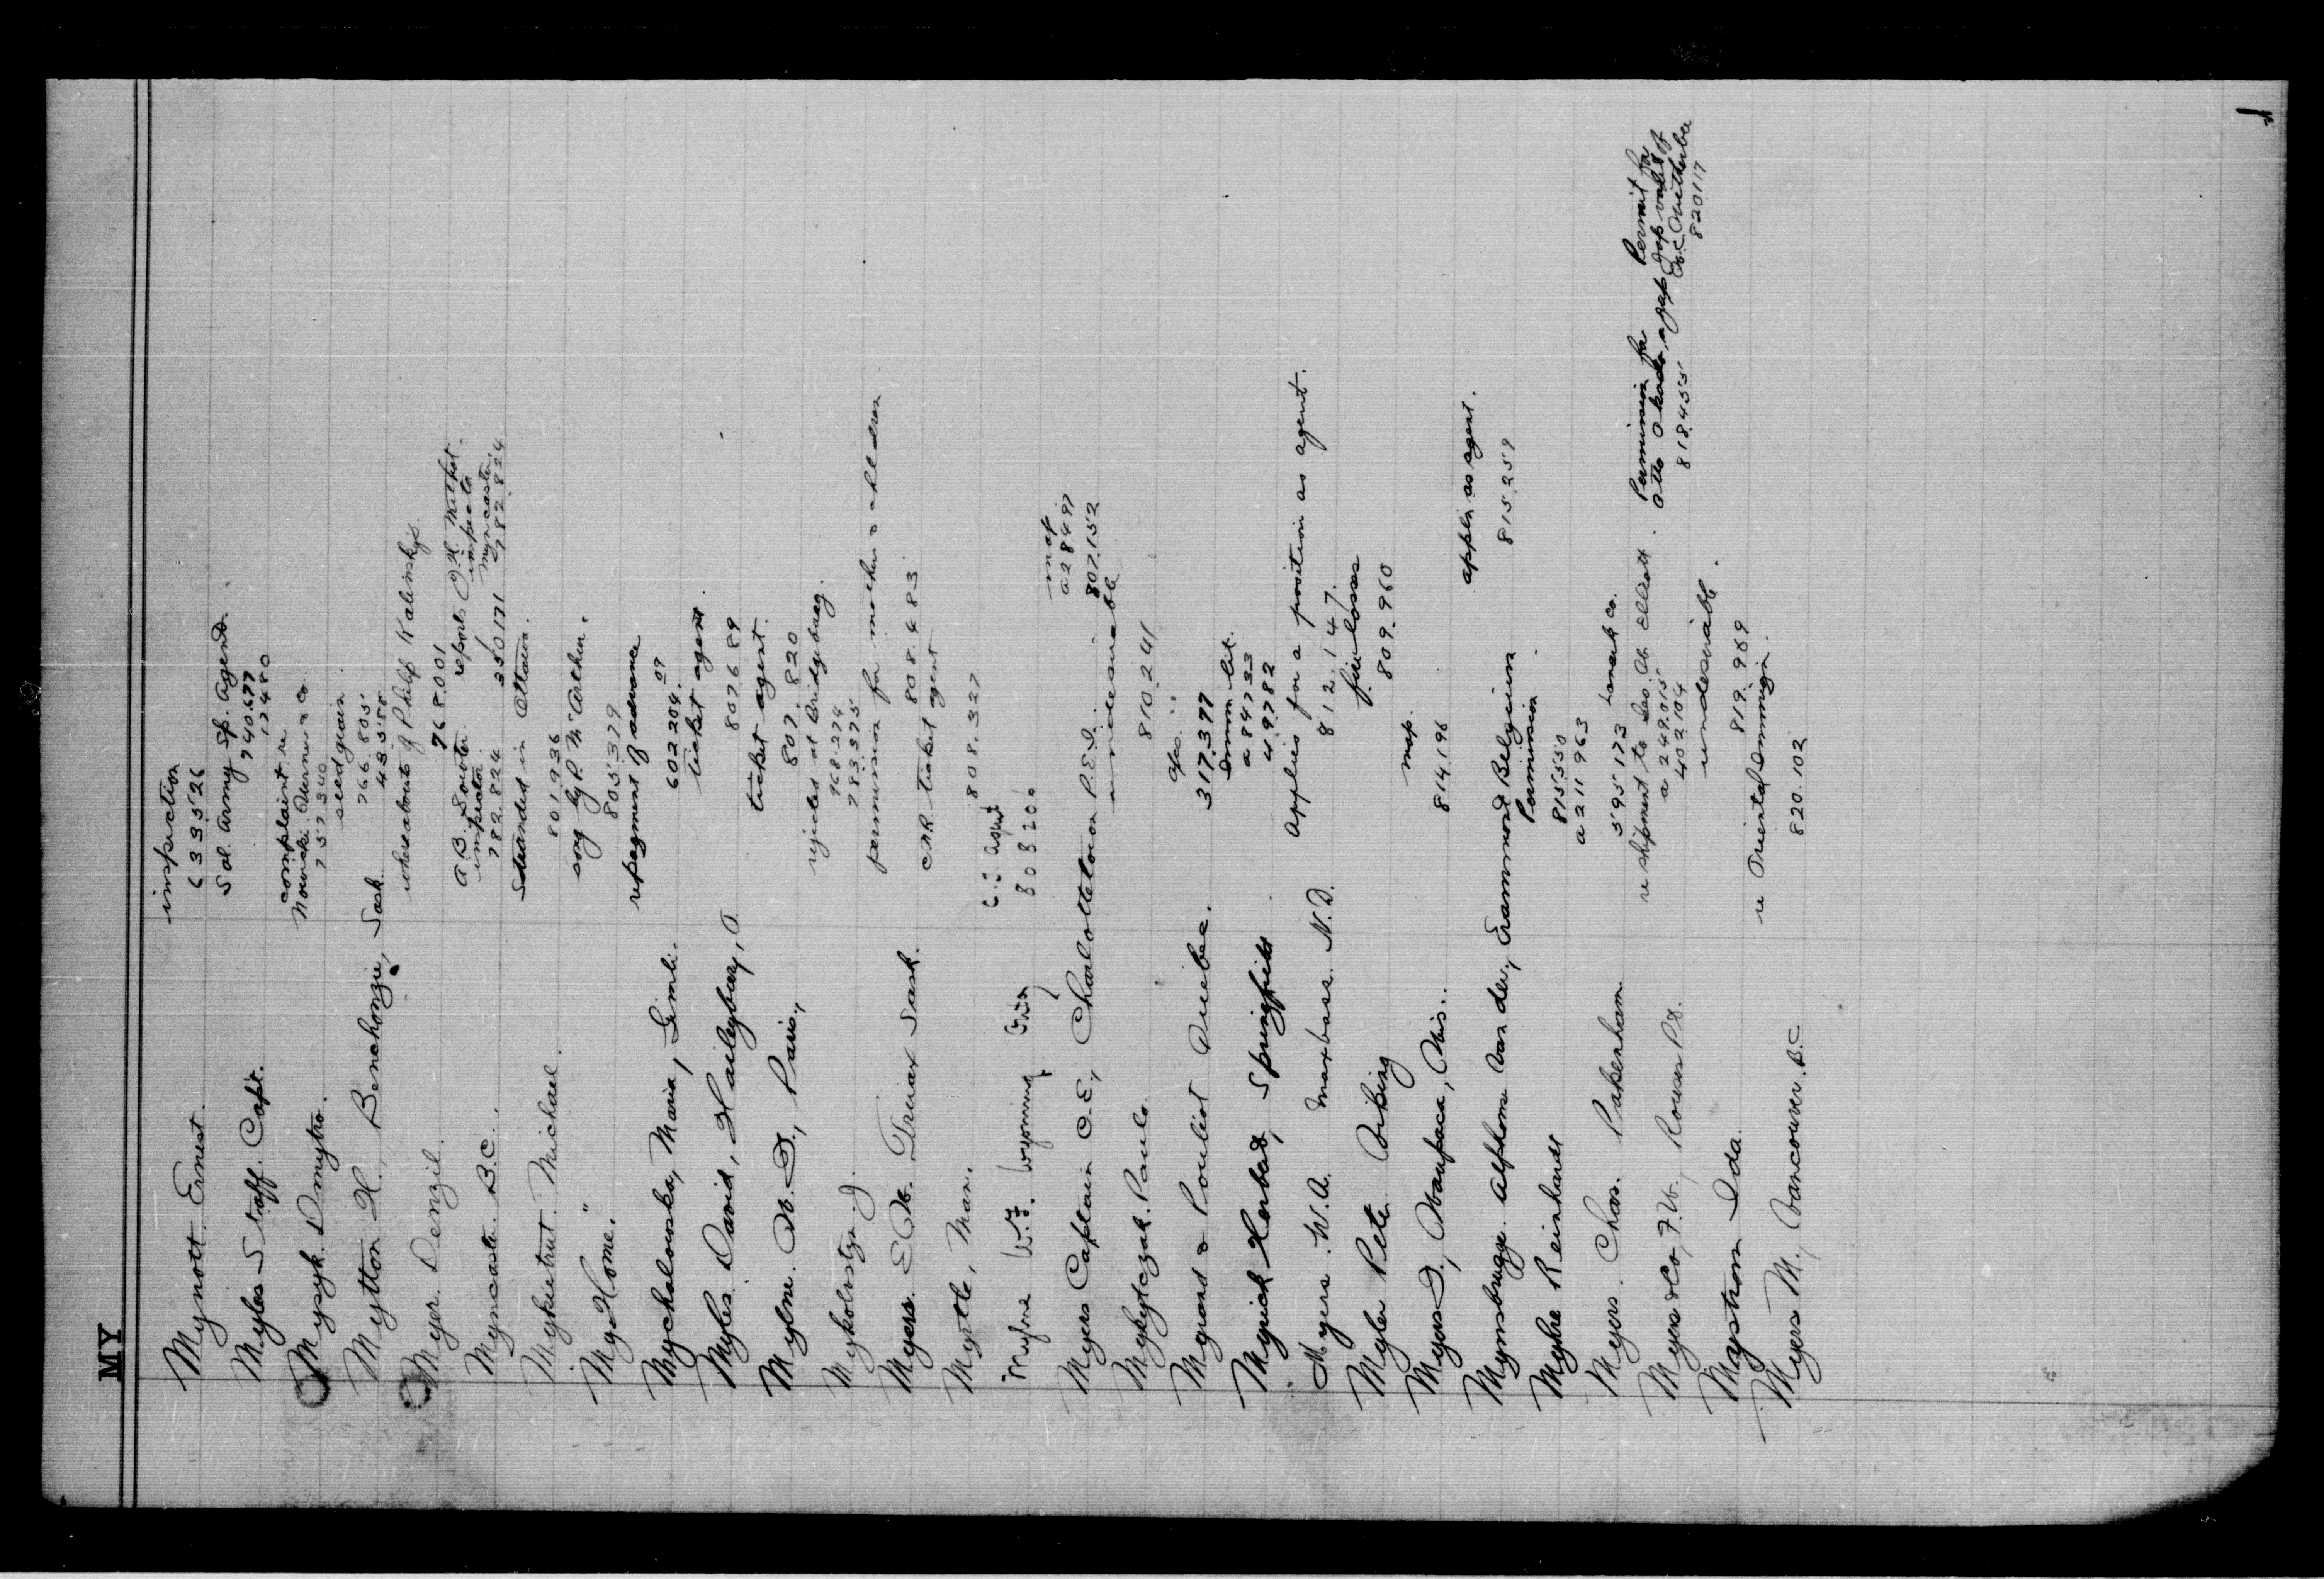 MY
Mynott. Ernest.
inspection
633526
Myles Staff. Capt.
Sal. Army Sp. Agend.
740.677
12480
Mysyk. Dmytro.
complaint re
757340
Mytton H., Benchonzie, Sask.
seed grain.
766.805
Myer. Denzil.
whereabouts of Philip Kalinsky's.
768.001
Myncaster. B.C.
A.B. Souter reports
inspector
782.824
350171
inspector
Myncaster.
782824
Myketrut. Michael.
Stranded in Ottawa.
801936
"My Home."
song by P. McArthur.
805.379
Mychalowska, Maria, Gimli.
repayment of advance
602204
Myles. David, Haileybury, O
ticket agent.
807689
Mylne. W. D., Paris.,
ticket agent.
807.820
Mykolastze. J.
rejected at Bridgeburg.
768.274
783.575
Myers. E.W. Truax Sask.
permission for mother & children
808.483
Myrtle, Man.
CNR ticket agent
808.327
W.F. Wyoming,
808206
Myers Captain C.E., Charlottetown P.E.I.
map
807.152
Mykytczak. Paulo.
undesirable
810241
Mygrand & Pouliot Quebec.
317.377
Myrick Herbert, Springfield
a 84733
49782
Myers. W.A. Maxbass. N.D.
Applies for a position as agent.
812.147.
Myler Peter
fire losses
809.960
Myers D., Waupaca, Wis..
map.
814.196
Mynsbrugge. Alphonse Van der, Grammond Belgium
appln as agent.
815.259
Myhre Reinhardt
Permission
815550
a 211963
Myers. Chas. Pakenham.
595173 Lanark Co.
Myers & Co, F.W., Rouses Pt.
re shipment to Geo. W. Elliott.
a 249.015
402.104
Permission for
818.455
Permit for
820117
Mystrom Ida.
undesirable.
819.989
Myers M., Vancouver. B.C
re Oriental Immign.
820.102